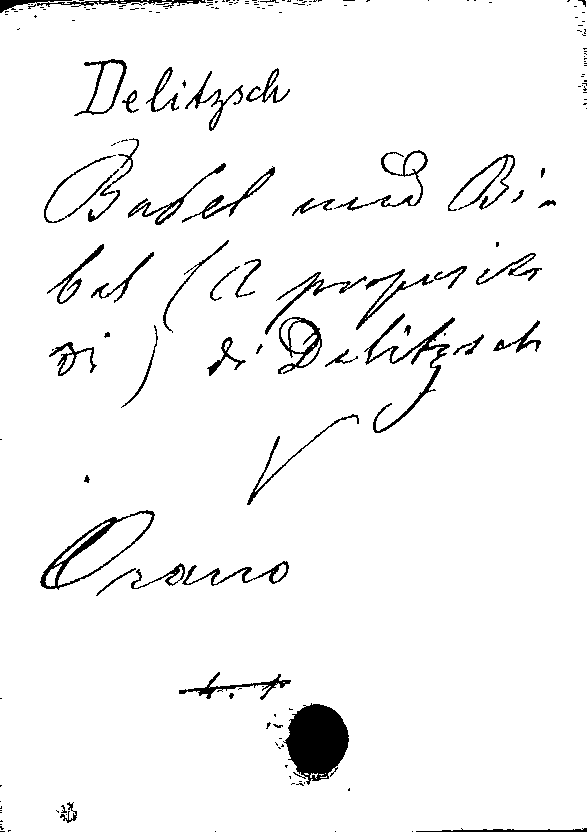 Delitzsch
Babel und Bi-
bel (A proposito
di) di Delitzsch
V
Orano